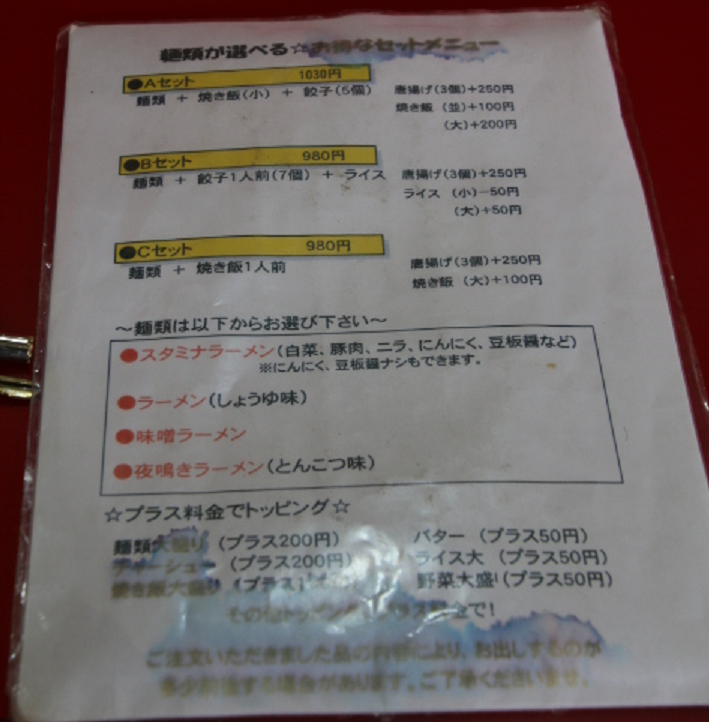 麺類が選べる☆お得なセットメニュー
●Aセット 1030円
麺類 + 焼き飯(小) + 餃子(5個) 唐揚げ(3個)+250円
焼き飯 (並)+100円
(大)+200円
●Bセット 980円
麺類 + 餃子1人前(7個) + ライス 唐揚げ(3個)+250円
ライス (小)-50円
(大)+50円
●Cセット 980円
麺類 + 焼き飯1人前 唐揚げ(3個)+250円
焼き飯 (大)+100円
~麺類は以下からお選び下さい~
●スタミナラーメン(白菜、豚肉、ニラ、にんにく、豆板醤など)
※にんにく、豆板醤ナシもできます。
●ラーメン(しょうゆ味)
●味噌ラーメン
●夜鳴きラーメン(とんこつ味)
☆プラス料金でトッピング☆
麺類大盛り (プラス200円) バター (プラス50円)
チャーシュー (プラス200円) ライス大 (プラス50円)
焼き飯大盛り (プラス 野菜大盛り(プラス50円)
その他トッピングもプラス料金で!
ご注文いただきました品の内容により、お出しするのが
多少前後する場合があります。ご了承くださいませ。